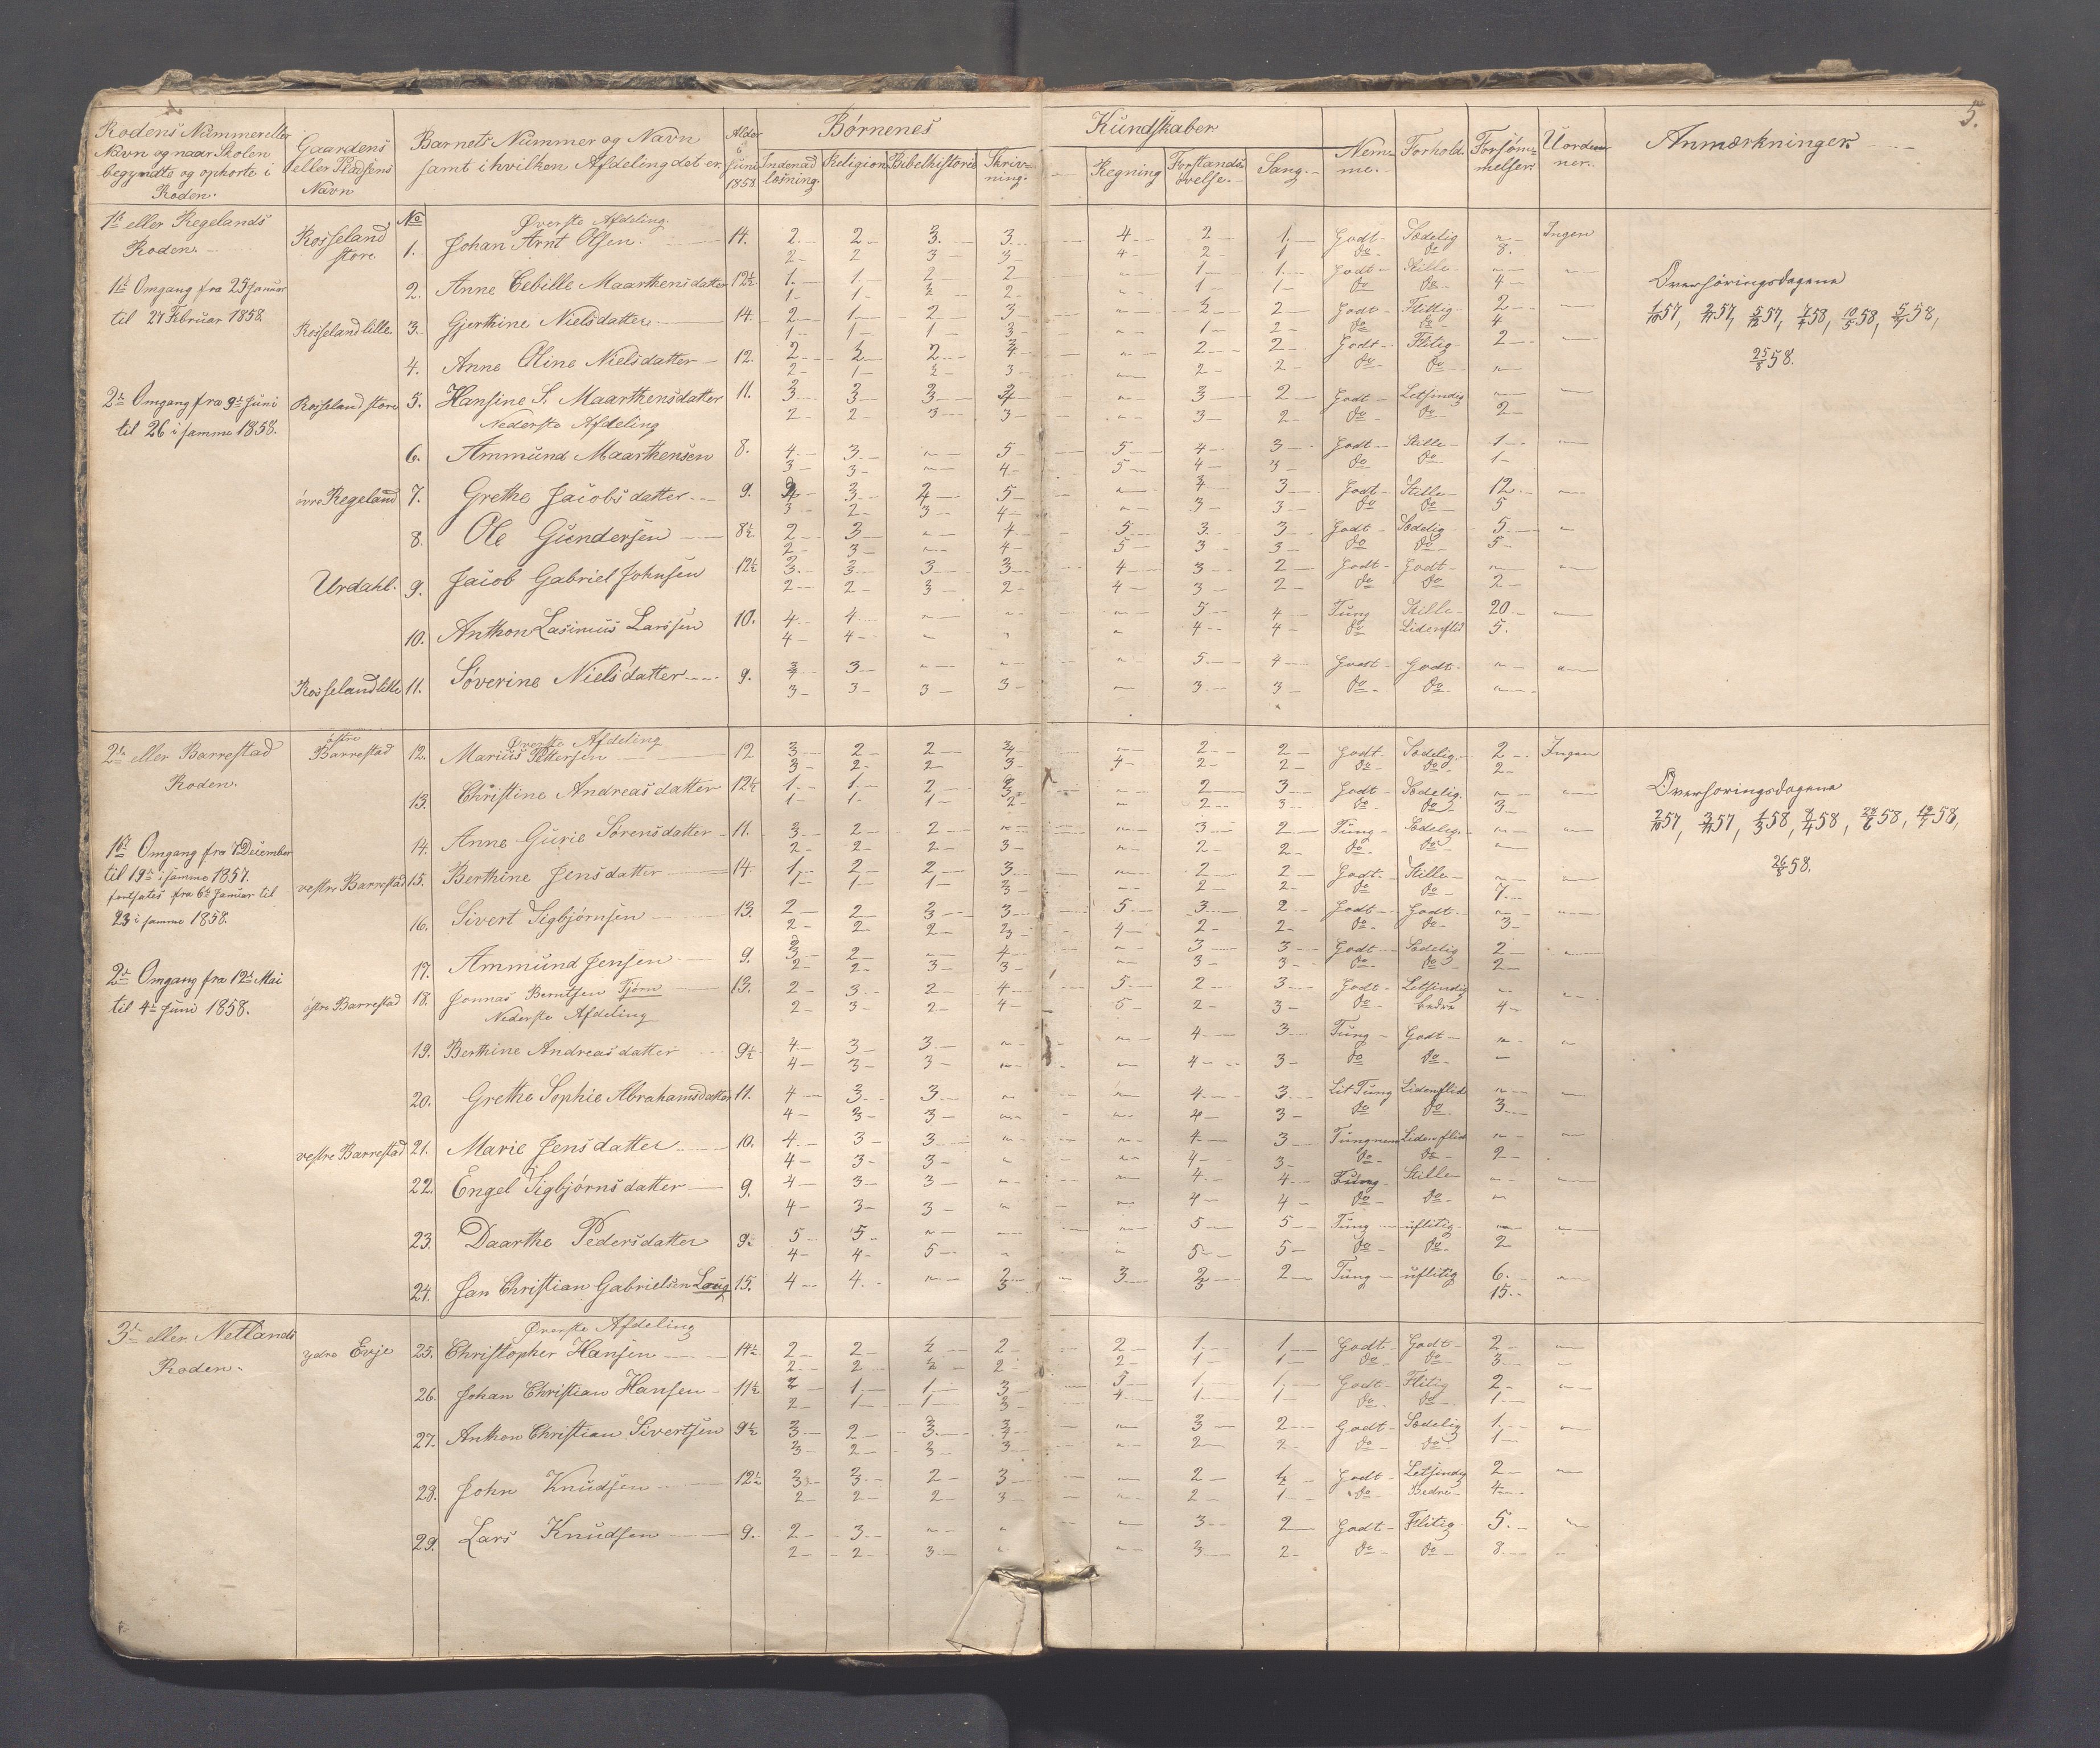 5.
Rodens Nummer eller Navn og naar Skolen begyndte og ophorte i Roden.
Gaardens eller Pladsens Navn
Barnets Nummer og Navn samt i hvilken Afdeling det er.
Alder 6 Juni 1858
Børnenes Kundskaber
Indenad læsning.
Religion
Bibelhistorie
Skrivning.
Regning
Forstands øvelse.
Sang.
Nemme.
Forhold.
Forsømmelser.
Uordener.
Anmærkninger.
1ste eller Regelands Roden.
1ste Omgang fra 25 Januar
til 27 Februar 1858.
2den Omgang fra 9de Juni
til 26 i samme 1858.
No
Øverste Afdeling.
Rosseland store. 1. Johan Arnt Olsen. 14. 2 2 3 3 4 2 1 Godt Sædelig Ingen
2 2 3 3 4 2 1 do do 8.
2. Anne Cebille Maarthensdatter 12½ 1 1 2 2 1 1 Godt Stille
do do 4
Rosseland lille 3. Gjerthine Nielsdatter 14. 2 1 2 3 Godt Flittig 2
do do 4
4. Anne Oline Nielsdatter 12. 2 Godt Flitig 2
do do
Rosseland store 5. Hansine S. Maarthensdatter 11. 3 3 3 3 2 Godt Letsindig
2 2 3 3 3 2 do do 2
Nederste Afdeling
6. Ammund Maarthensen 8. 4 3 5 5 4 3 Godt Stille 1
3 3 4 5 4 3 do do 1
øvre Regeland 7. Grethe Jacobsdatter 9. 3 5 3 Godt Stille 12
3 2 3 4 3 3 do do 5
8. Ole Gundersen 8½ 2 3 4 5 3 3 Godt Sædelig 5
2 3 4 5 3 3 do do 5
Urdahl. 9. Jacob Gabriel Johnsen 12½ 3 3 3 3 4 3 2 Godt Godt
2 2 3 2 4 3 2 do do 2
10. Anthon Lasimus Larssen 10. 4 4 5 4 Tung Stille 20
4 4 4 4 do Lidenflid 5.
Rosseland lille 11. Søverine Nielsdatter 9. 3 5 4 Godt Godt
3 3 3 3 3 3 do do
Overhøringsdagene
1/10 57, 2/11 57, 5/12 57, 7/4 58, 10/5 58, 5/7 58,
25/8 58.
2den eller Barrestad
Roden.
1ste Omgang fra 7 December
til 19de i samme 1857.
fortsates fra 6te Januar til
23 i samme 1858.
2den Omgang fra 12te Mai
til 4de Juni 1858.
Øverste Afdeling
østre Barrestad 12. Marius Pettersen 12 3 2 2 2 2 Godt Sædelig 2 Ingen
3 2 2 3 4 2 2 do do 2
13. Christine Andreasdatter 12½ 1 1 2 2 3 Godt Sædelig
1 1 1 2 2 3 do do 3
14. Anne Gurie Sørensdatter 11. 3 2 2 3 2 Tung Sædelig
2 2 2 3 2 2 do do
vestre Barrestad 15. Berthine Jensdatter 14 1 2 2 3 2 2 Godt Stille
1 1 1 3 2 2 do do 7
16. Sivert Sigbjørnsen 13. 2 2 3 5 3 2 Godt Godt
2 2 2 4 2 2 do do 3
17. Ammund Jensen 9. 2 4 3 3 Godt Sædelig 2
2 2 3 3 3 3 do do 2
østre Barrestad 18. Jonnas Berntsen Tjørn 13. 2 3 2 4 5 2 3 Godt Letsindig
2 3 2 4 5 2 3 do bedre 4
Nederste Afdeling
19. Berthine Andreasdatter 9½ 4 3 3 4 3 Tung Godt
4 3 3 4 3 do do
20. Grethe Sophie Abrahamsdatter 11. 4 3 3 4 3 Lit Tung Lidenflid
4 3 3 4 3 do do 3
vestre Barrestad 21. Marie Jensdatter 10. 4 3 3 4 3 Tungnem Liden flid
4 3 3 4 3 do do 2
22. Engel Sigbjørnsdatter 9. 4 3 3 4 4 Tung Stille
4 3 3 4 4 do do
23. Daarthe Pedersdatter 9½ 5 5 5 5 Tung uflitig
4 4 5 5 5 do do 2
24. Jan Christian Gabrielsen Laug 15. 4 4 3 2 Tung uflitig 6.
15.
Overhøringsdagene
2/10 57, 3/11 57, 1/3 58, 8/4 58, 28/6 58, 19/7 58,
26/8 58.
3die eller Netlands
Roden.
Øverste Afdeling
ydre Evje 25. Christopher Hansen 14½ 2 2 2 2 1 1 Godt Godt 2
2 2 2 2 1 1 do do 3
26. Johan Christian Hansen 11½ 2 1 1 3 3 1 1 Godt Flitig 2
2 1 1 3 4 1 1 do do 1
27. Anthon Christian Sivertsen 9½ 3 2 3 3 2 Godt Sædelig 1
3 2 3 3 2 2 do do 1
28. John Knudsen 12½ 3 3 2 3 2 Godt Letsindig 2
2 2 2 3 2 1 do Bedre 4
29. Lars Knudsen 9. 2 3 3 2 Godt Flitig 5.
2 2 3 3 2 do do 8